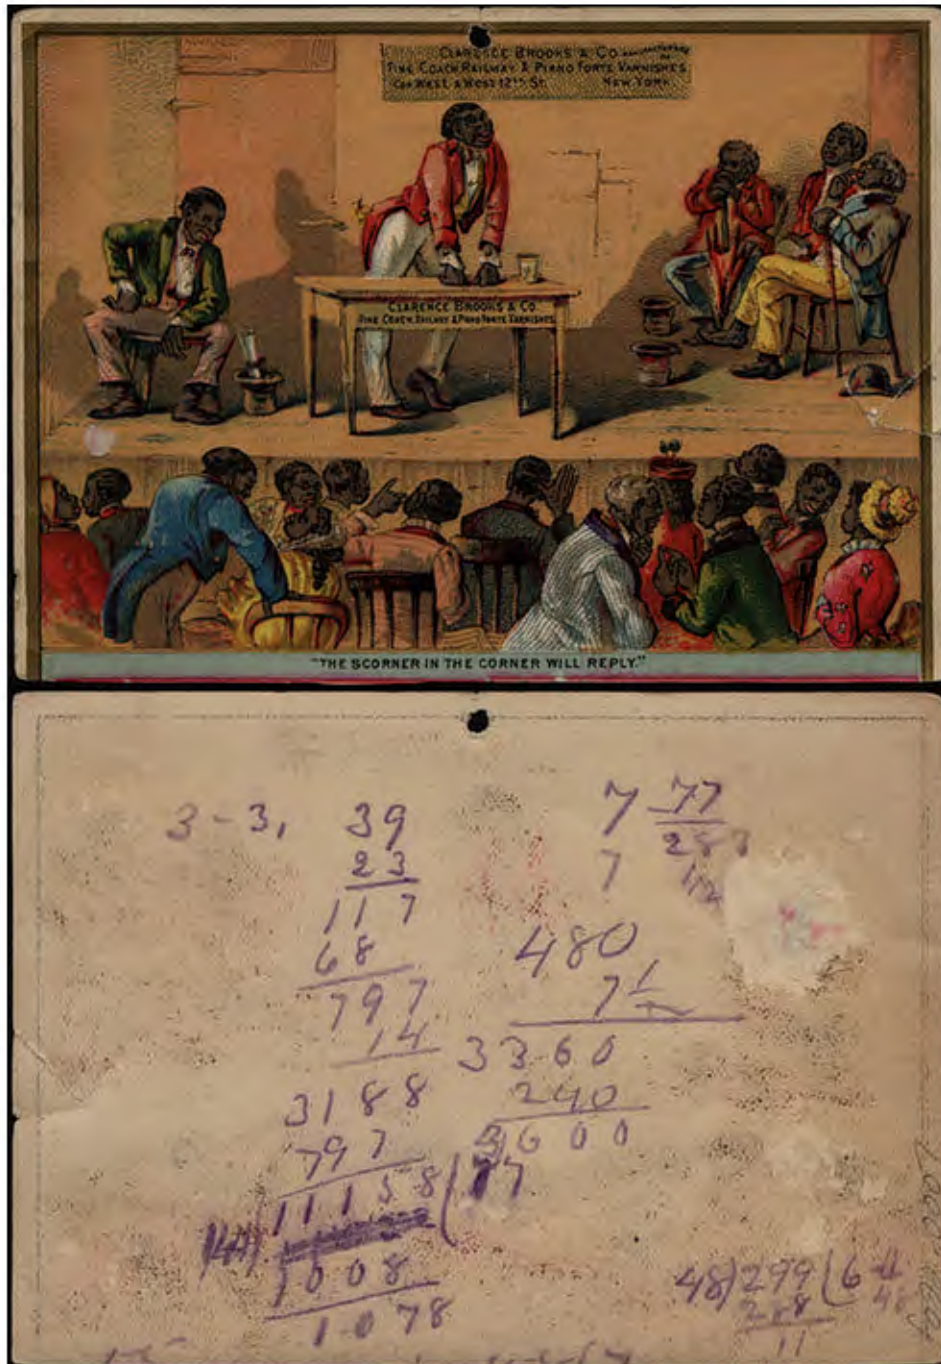 CLARENCE BROOKS & CO. MANUFACTURERS OF
FINE COACH RAILWAY & PIANO FORTE VARNISHES
COR WEST & WEST 12TH ST. NEW YORK
CLARENCE BROOKS & CO
FINE COACH, RAILWAY & PIANO FORTE VARNISHES.
"THE SCORNER IN THE CORNER WILL REPLY."
3-3, 39
23
117
68
797
14
3188
797
11158 (77
144)
1008
1078
7 77
28
7
480
7 1/2
3360
240
3600
48)299(6
288
11